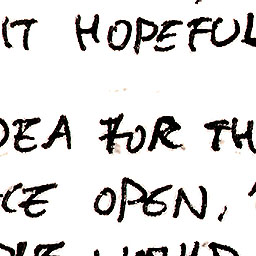 IT HOPEFUL
DEA FOR TH
CE OPEN,
WOULD